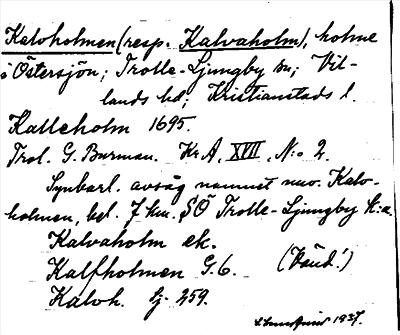 Kaloholmen (resp. Kalvaholm), holme
i Östersjön; Trolle-Ljungby sn; Vil-
lands hd; Kristianstads l.
Kalleholm 1695.
Trol. G. Burman. Kr. A, XVII, N:o 2.
Synbarl. avsåg namnet nuv. Kalo-
holmen, bel. 7 km. SÖ Trolle-Ljungby k:a.
Kalvaholm ek.
Kalfholmen G.6. (Händ!)
Kaloh. Sj. 259.
1937.